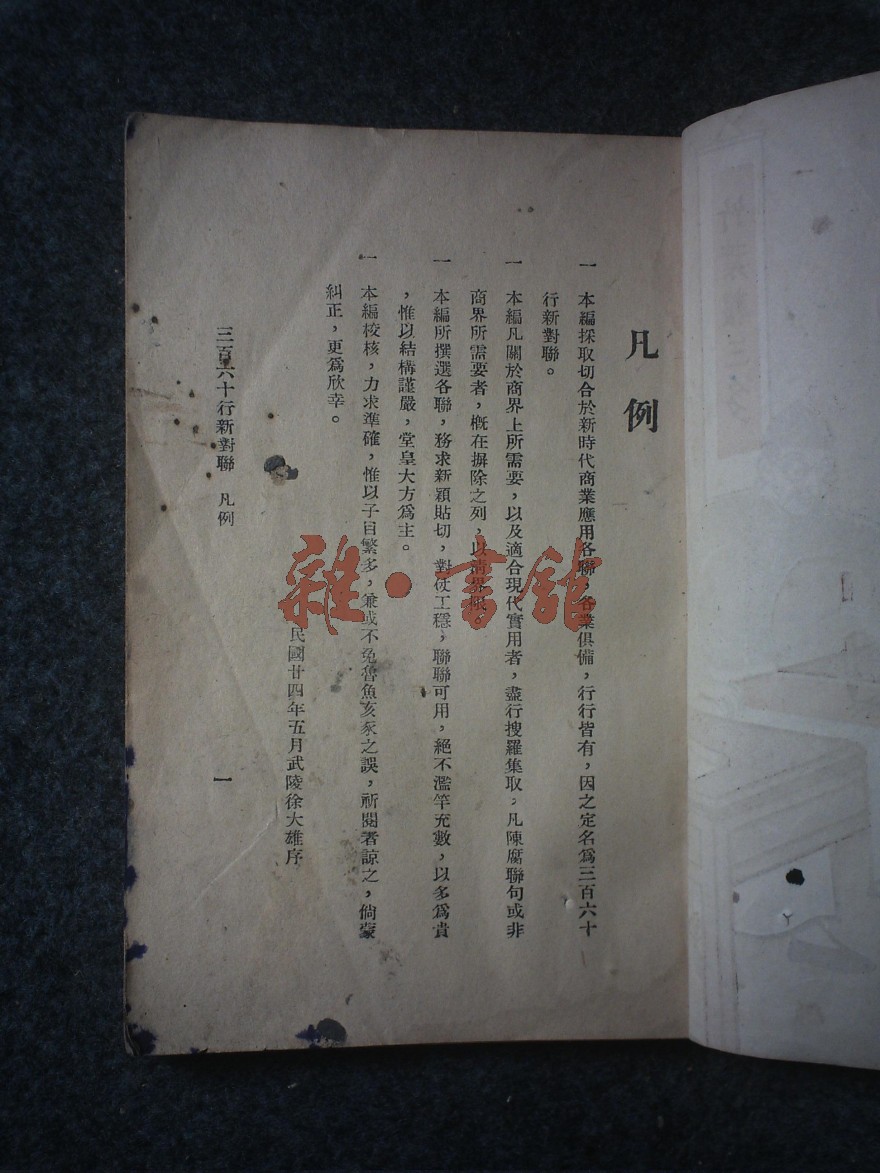 凡例
一　本編採取切合於新時代商業應用各聯，各業俱備，行行皆有，因之定名爲三百六十
行新對聯。
一　本編凡關於商界上所需要，以及適合現代實用者，盡行搜羅集取，凡陳腐聯句或非
商界所需要者，概在摒除之列，以清界限。
一　本編所撰選各聯，務求新穎貼切，對仗工穩，聯聯可用，絕不濫竽充數，以多爲貴
，惟以結構謹嚴，堂皇大方爲主。
一　本編校核，力求準確，惟以子目繁多，兼或不免魯魚亥豕之誤，祈閱者諒之，倘蒙
糾正，更爲欣幸。
民國廿四年五月武陵徐大雄序
三百六十行新對聯　凡例
一
雜·書館